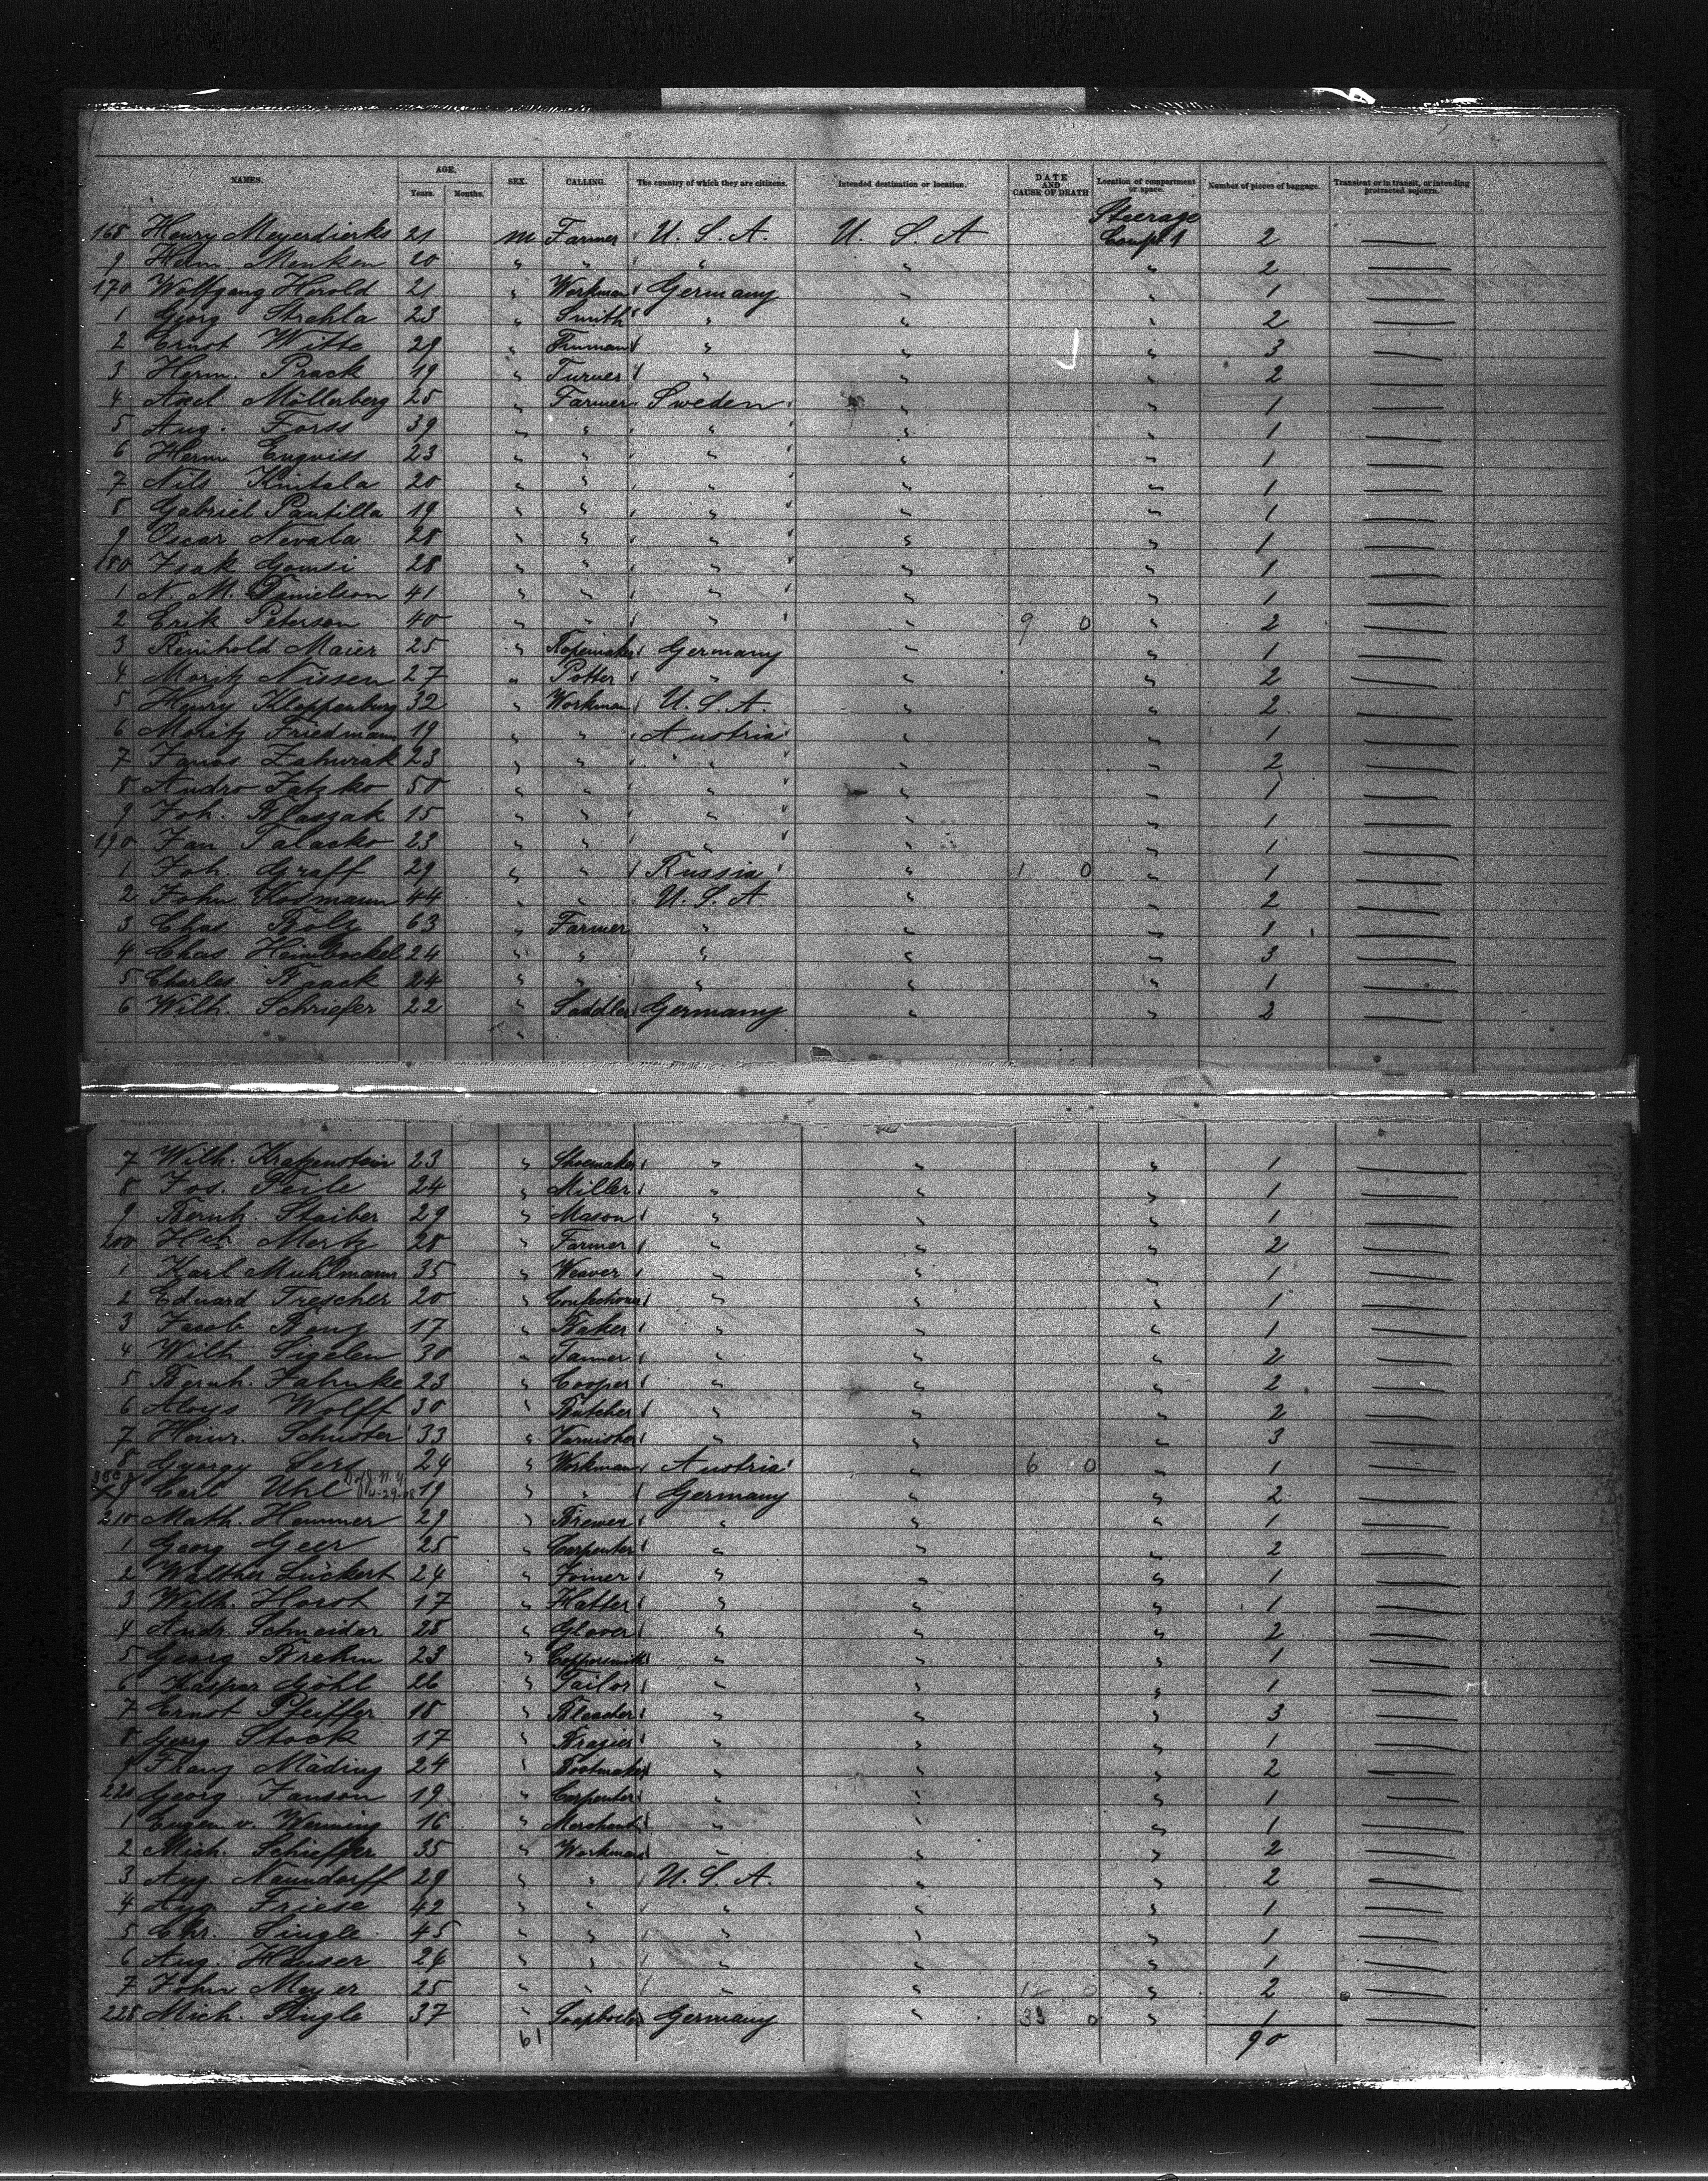 NAMES. AGE. Years. Months. SEX. CALLING. The country of which they are citizens. Intended destination or location. DATE AND CAUSE OF DEATH Location of compartment or space. Number of pieces of baggage. Transient or in transit, or intending protracted sojourn.
Steerage
168 Henry Meyerdierks 21 m Farmer U. S. A. U. S. A Comp. 1 2 —
9 Herm Menken 20 " " " " " 2 —
170 Wolfgang Herold 21 " Workman Germany " " 1 —
1 Georg Strehla 23 " Smith " " " 2 —
2 Ernst Witte 29 " " " " 3 —
3 Herm. Prack 19 " Turner " " " 2 —
4 Axel Möllerberg 25 " Farmer Sweden " " 1 —
5 Aug. Forss 39 " " " " " 1 —
6 Herm Enqviss 23 " " " " " 1 —
7 Nils Kintala 20 " " " " " 1 —
8 Gabriel Pantilla 19 " " " " " 1 —
9 Oscar Nevala 28 " " " " " 1 —
180 Isak Gomsi 28 " " " " " 1 —
1 N. M. Danielson 41 " " " " " 1 —
2 Erik Peterson 40 " " " " 9 0 " 2 —
3 Reinhold Maier 25 " Ropemaker Germany " " 1 —
4 Moritz Nissen 27 " Potter " " " 2 —
5 Henry Kloppenburg 32 " Workman U. S. A. " " 2 —
6 Moritz Friedmann 19 " " Austria " " 1 —
7 Janos Zahuriak 23 " " " " " 2 —
8 Andro Jatzko 50 " " " " " 1 —
9 Joh. Blaszak 15 " " " " " 1 —
190 Jan Talacko 23 " " " " " 1 —
1 Joh. Graff 29 " " Russia " 1 0 " 1 —
2 John Kosmann 44 " " U. S. A " " 2 —
3 Chas Bolz 63 " Farmer " " " 1 —
4 Chas Heimbockel 24 " " " " " 3 —
5 Charles Brack 24 " " " " " 1 —
6 Wilh. Schriefer 22 " Saddler Germany " " 2 —
7 Wilh. Kratzenstein 23 " Shoemaker " " " 1 —
8 Jos. Seile 24 " Miller " " " 1 —
9 Bernh. Staiber 29 " Mason " " " 1 —
200 Hch Mertz 28 " Farmer " " " 2 —
1 Karl Muhlmann 35 " Weaver " " " 1 —
2 Eduard Trescher 20 " Confectioner " " " 1 —
3 Jacob Benz 17 " Baker " " " 1 —
4 Wilh Sigelen 30 " Tanner " " " 2 —
5 Bernh. Jahnke 23 " Cooper " " " 2 —
6 Aloys Wolff 30 " Butcher " " " 2 —
7 Heinr. Schuster 33 " Varnisher " " " 3 —
8 Gyorgy Sers 24 " Workman Austria " 6 0 " 1 —
9 Carl Uhl 19 " " Germany " " 2 —
210 Math. Hemmer 29 " Brewer " " " 1 —
1 Georg Geer 25 " Carpenter " " " 2 —
2 Walther Lückert 24 " Joiner " " " 1 —
3 Wilh. Horst 17 " Hatter " " " 1 —
4 Andr. Schneider 28 " Glover " " " 2 —
5 Georg Brehm 23 " Coppersmith " " " 1 —
6 Kaspar Göhl 26 " Tailor " " " 1 —
7 Ernst Pfeiffer 18 " Bleacher " " " 3 —
8 Georg Stock 17 " Brazier " " " 1 —
9 Franz Mäding 24 " Bootmaker " " " 2 —
220 Georg Janson 19 " Carpenter " " " 1 —
1 Eugen v. Wenning 16 " Merchant " " " 1 —
2 Mich. Schieffer 35 " Workman " " " 2 —
3 Aug. Naundorff 29 " " U. S. A. " " 2 —
4 Aug Friese 42 " " " " " 1 —
5 Chr. Single 45 " " " " " 1 —
6 Aug. Hauser 24 " " " " " 1 —
7 John Meyer 25 " " " " 12 0 " 2 —
228 Mich. Single 37 " Soapboiler Germany " 33 0 " 1 —
61 90